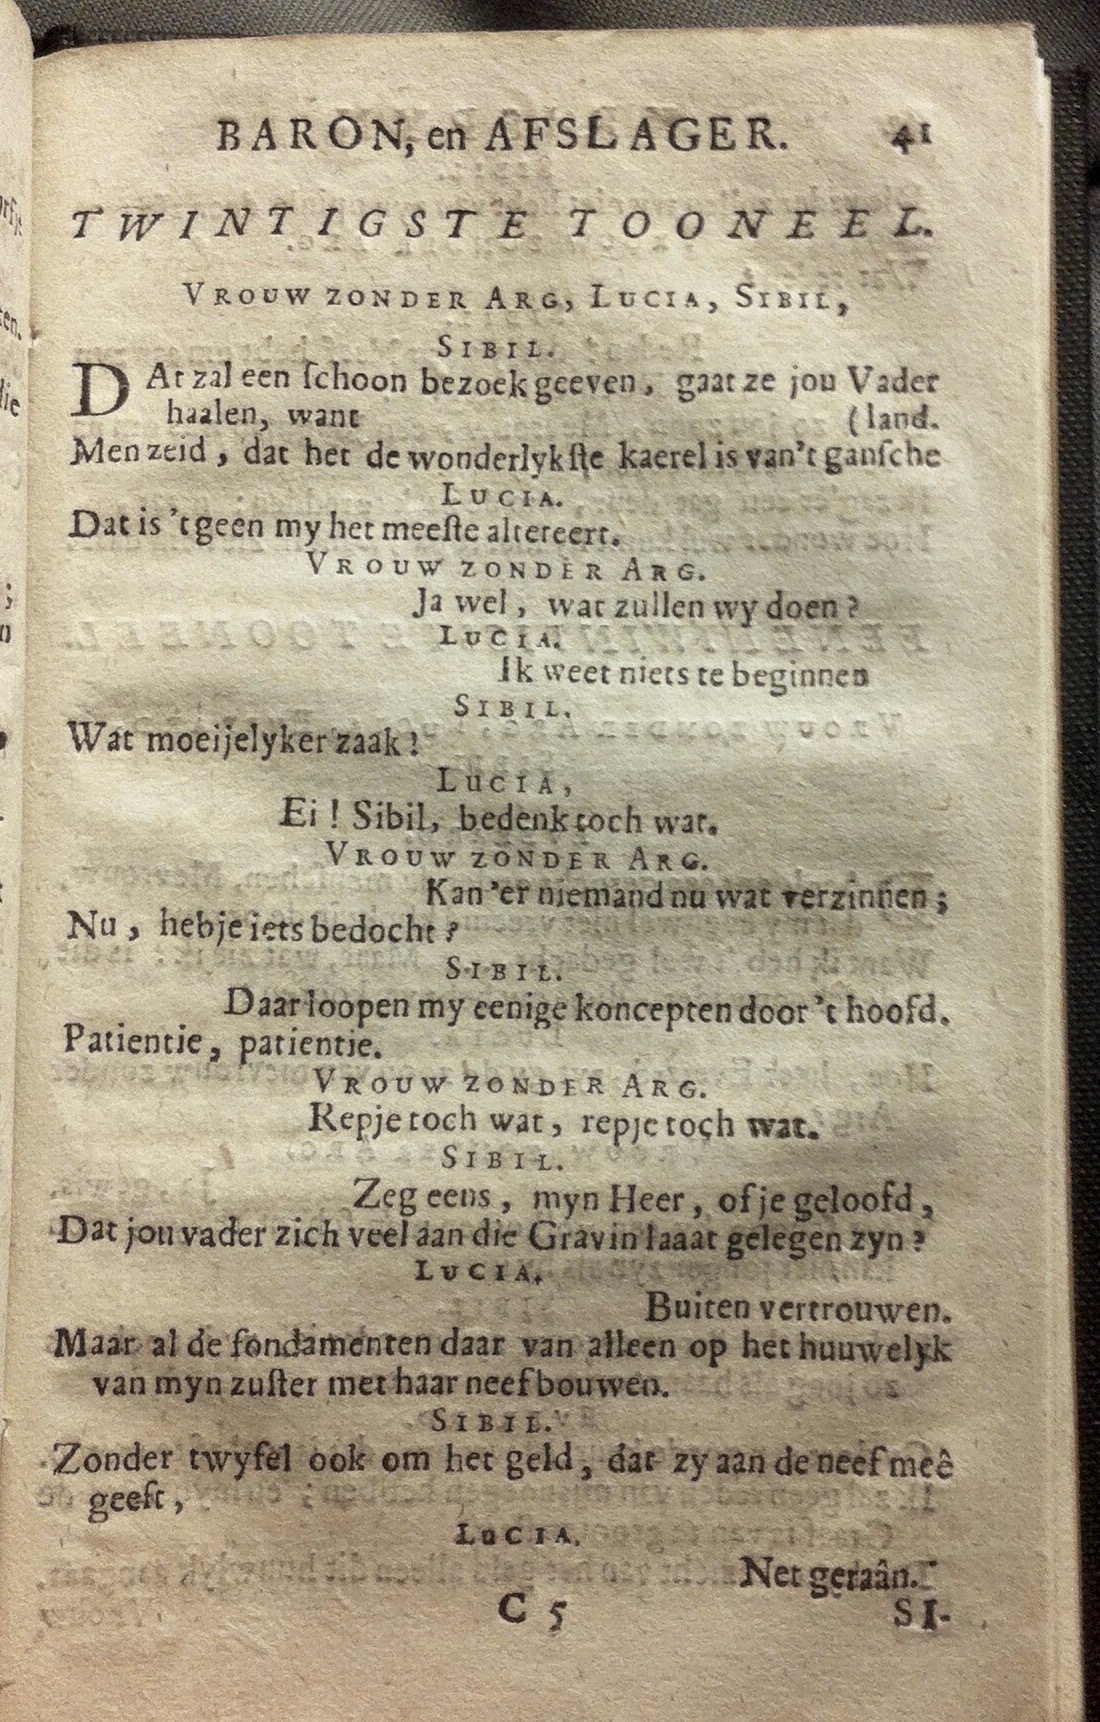 BARON, en AFSLAGER. 41
TWINTIGSTE TOONEEL.
VROUW ZONDER ARG, LUCIA, SIBIL,
SIBIL.
DAt zal een ſchoon bezoek geeven, gaat ze jou Vader
haalen, want (land.
Men zeid, dat het de wonderlykſte kaerel is van't ganſche
LUCIA.
Dat is 't geen my het meeſte altereert.
VROUW ZONDER ARG.
Ja wel, wat zullen wy doen?
LUCIA.
Ik weet niets te beginnen
SIBIL.
Wat moeijelyker zaak!
LUCIA,
Ei! Sibil, bedenk toch wat.
VROUW ZONDER ARG.
Kan 'er niemand nu wat verzinnen;
Nu, heb je iets bedocht?
SIBIL.
Daar loopen my eenige koncepten door 't hoofd.
Patientie, patientie.
VROUW ZONDER ARG.
Rep je toch wat, rep je toch wat.
SIBIL.
Zeg eens, myn Heer, of je geloofd,
Dat jou vader zich veel aan die Gravin laaat gelegen zyn?
LUCIA.
Buiten vertrouwen.
Maar al de fondamenten daar van alleen op het huuwelyk
van myn zuſter met haar neef bouwen.
SIBIL.
Zonder twyfel ook om het geld, dat zy aan de neef meê
geeft,
LUCIA.
Net geraân.
C 5 SI-